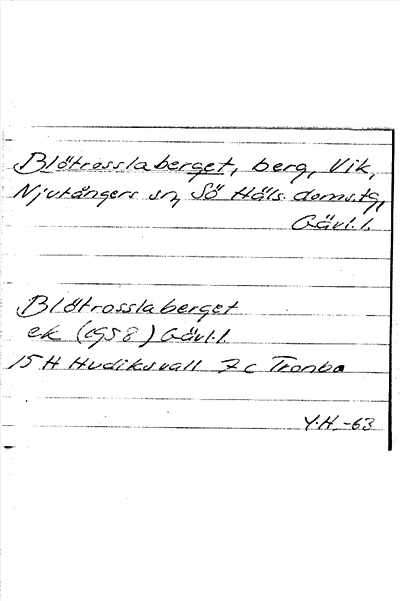 Blötrosslaberget, berg, Vik,
Njutångers sn, Sö Häls. doms.tg,
Gävl.l.
Blötrosslaberget
ek (1958) Gävl.l.
15 H Hudiksvall 7 c Tronbo
Y.H. -63